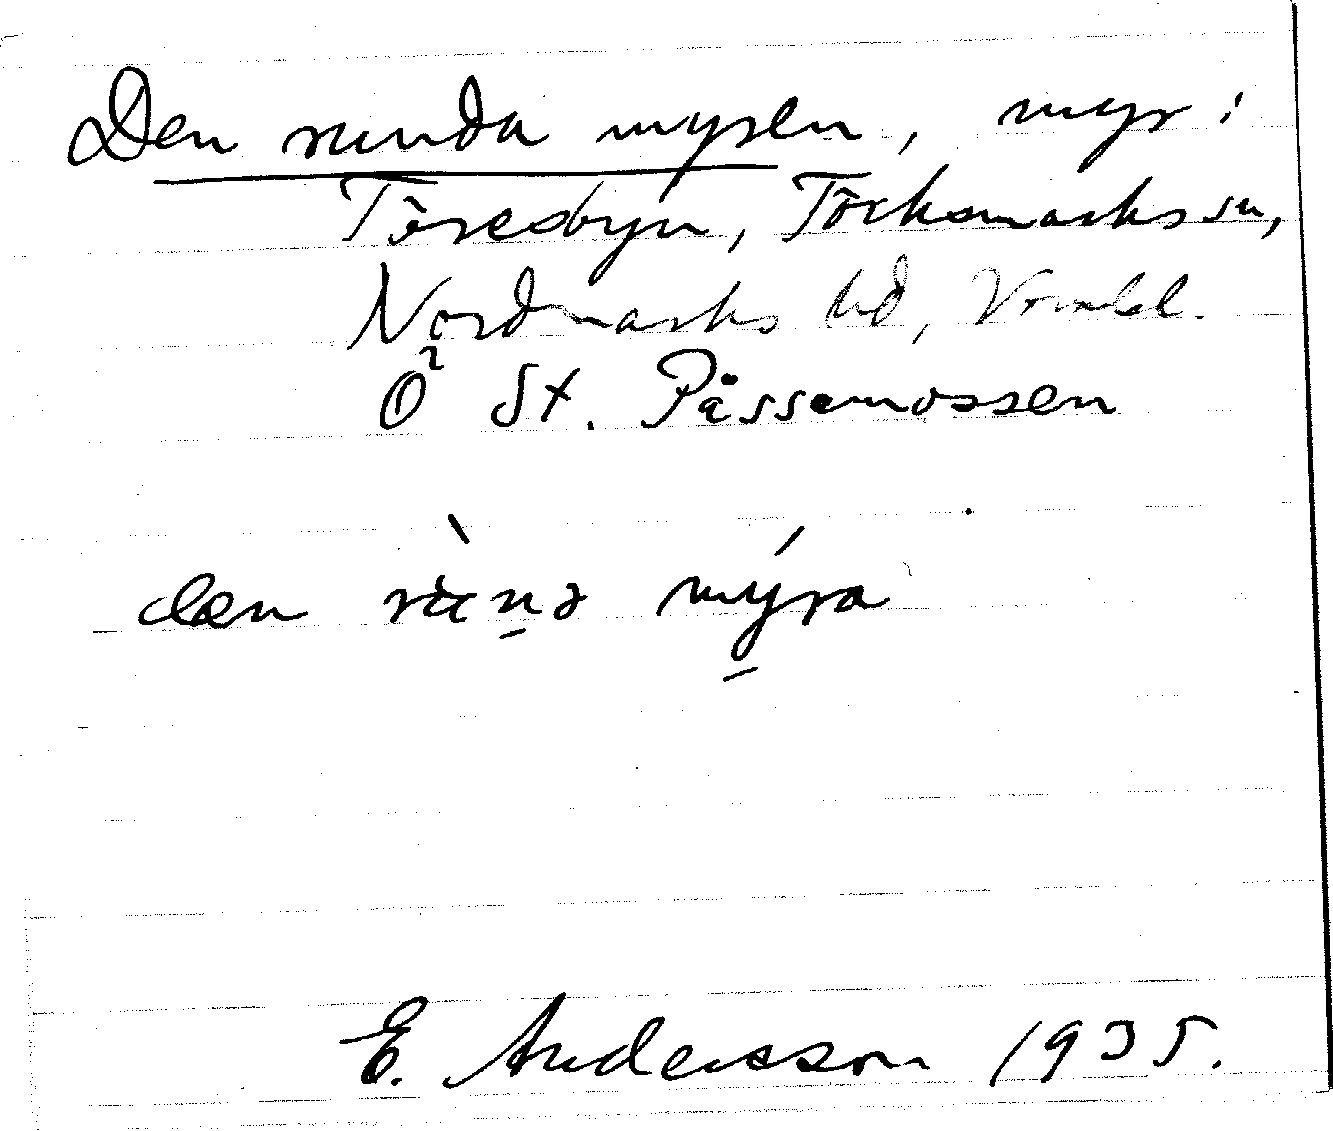 Den runda myren, myr i
Töresbyn, Töcksmarks sn,
Nordmarks hd, Värmld.
Ö St. Påssemossen
den rùnə mýra
E. Andersson 1935.